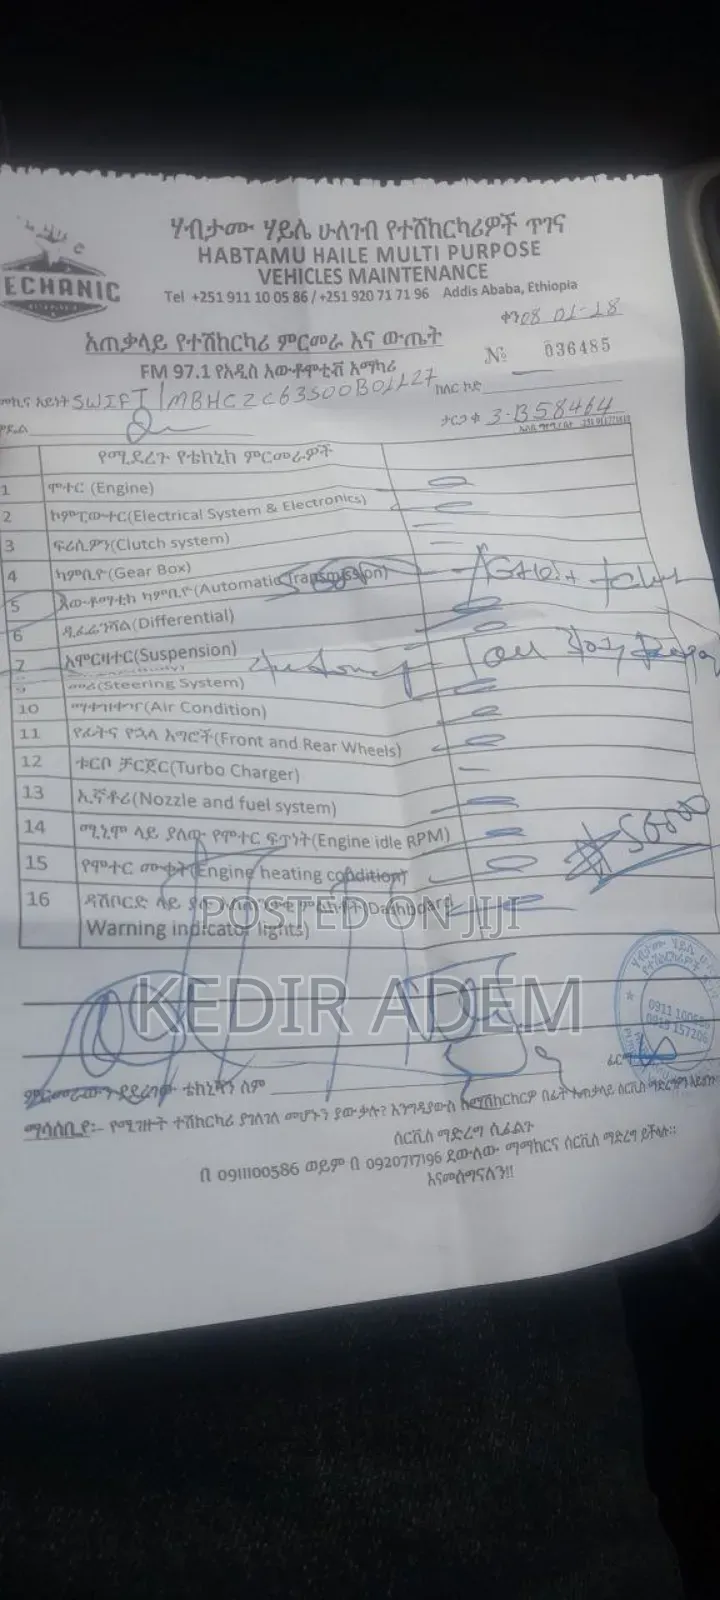 ECHANIC
ሃብታሙ ሃይሌ ሁለገብ የተሽከርካሪዎች ጥገና
HABTAMU HAILE MULTI PURPOSE
VEHICLES MAINTENANCE
Tel +251 911 10 05 86 / +251 920 71 71 96 Addis Ababa, Ethiopia
ቀን 08 01-18
አጠቃላይ የተሽከርካሪ ምርመራ እና ውጤት
№ 036485
FM 97.1 የአዲስ አውቶሞቲቭ አማካሪ
መኪና አይነት SWIFT / MBHCZC63S00B01127
ታርጋ ቁ 3-B58464
የሚደረጉ የቴክኒክ ምርመራዎች
1 ሞተር (Engine)
2 ኮምፒውተር(Electrical System & Electronics)
3 ፍሪሲዎን(Clutch system)
4 ካምቢዮ(Gear Box)
5 አውቶማቲክ ካምቢዮ(Automatic Transmission)
6 ዲፈሬንሻል(Differential)
7 አሞርዛተር(Suspension)
9 መሪ(Steering System)
10 ማቀዝቀዣ(Air Condition)
11 የፊትና የኋላ እግሮች(Front and Rear Wheels)
12 ቱርቦ ቻርጀር(Turbo Charger)
13 ኢኛቶሪ(Nozzle and fuel system)
14 ሚኒሞ ላይ ያለው የሞተር ፍጥነት(Engine idle RPM)
15 የሞተር ሙቀት(Engine heating condition)
16 ዳሽቦርድ ላይ (Dashboard
Warning indicator lights)
56000
POSTED ON JIJI
KEDIR ADEM
0911 100586
ፊርማ
ምርመራውን ያደረገው ቴክኒሻን ስም
ማሳሰቢያ:- የሚገዙት ተሽከርካሪ ያገለገለ መሆኑን ያውቃሉ? እንግዲያውስ ከማሽከርከርዎ በፊት አጠቃላይ ሰርቪስ ማድረግዎን አይርሱ
ሰርቪስ ማድረግ ሲፈልጉ
በ 0911100586 ወይም በ 0920717196 ደውለው ማማከርና ሰርቪስ ማድረግ ይችላሉ።
እናመሰግናለን!!